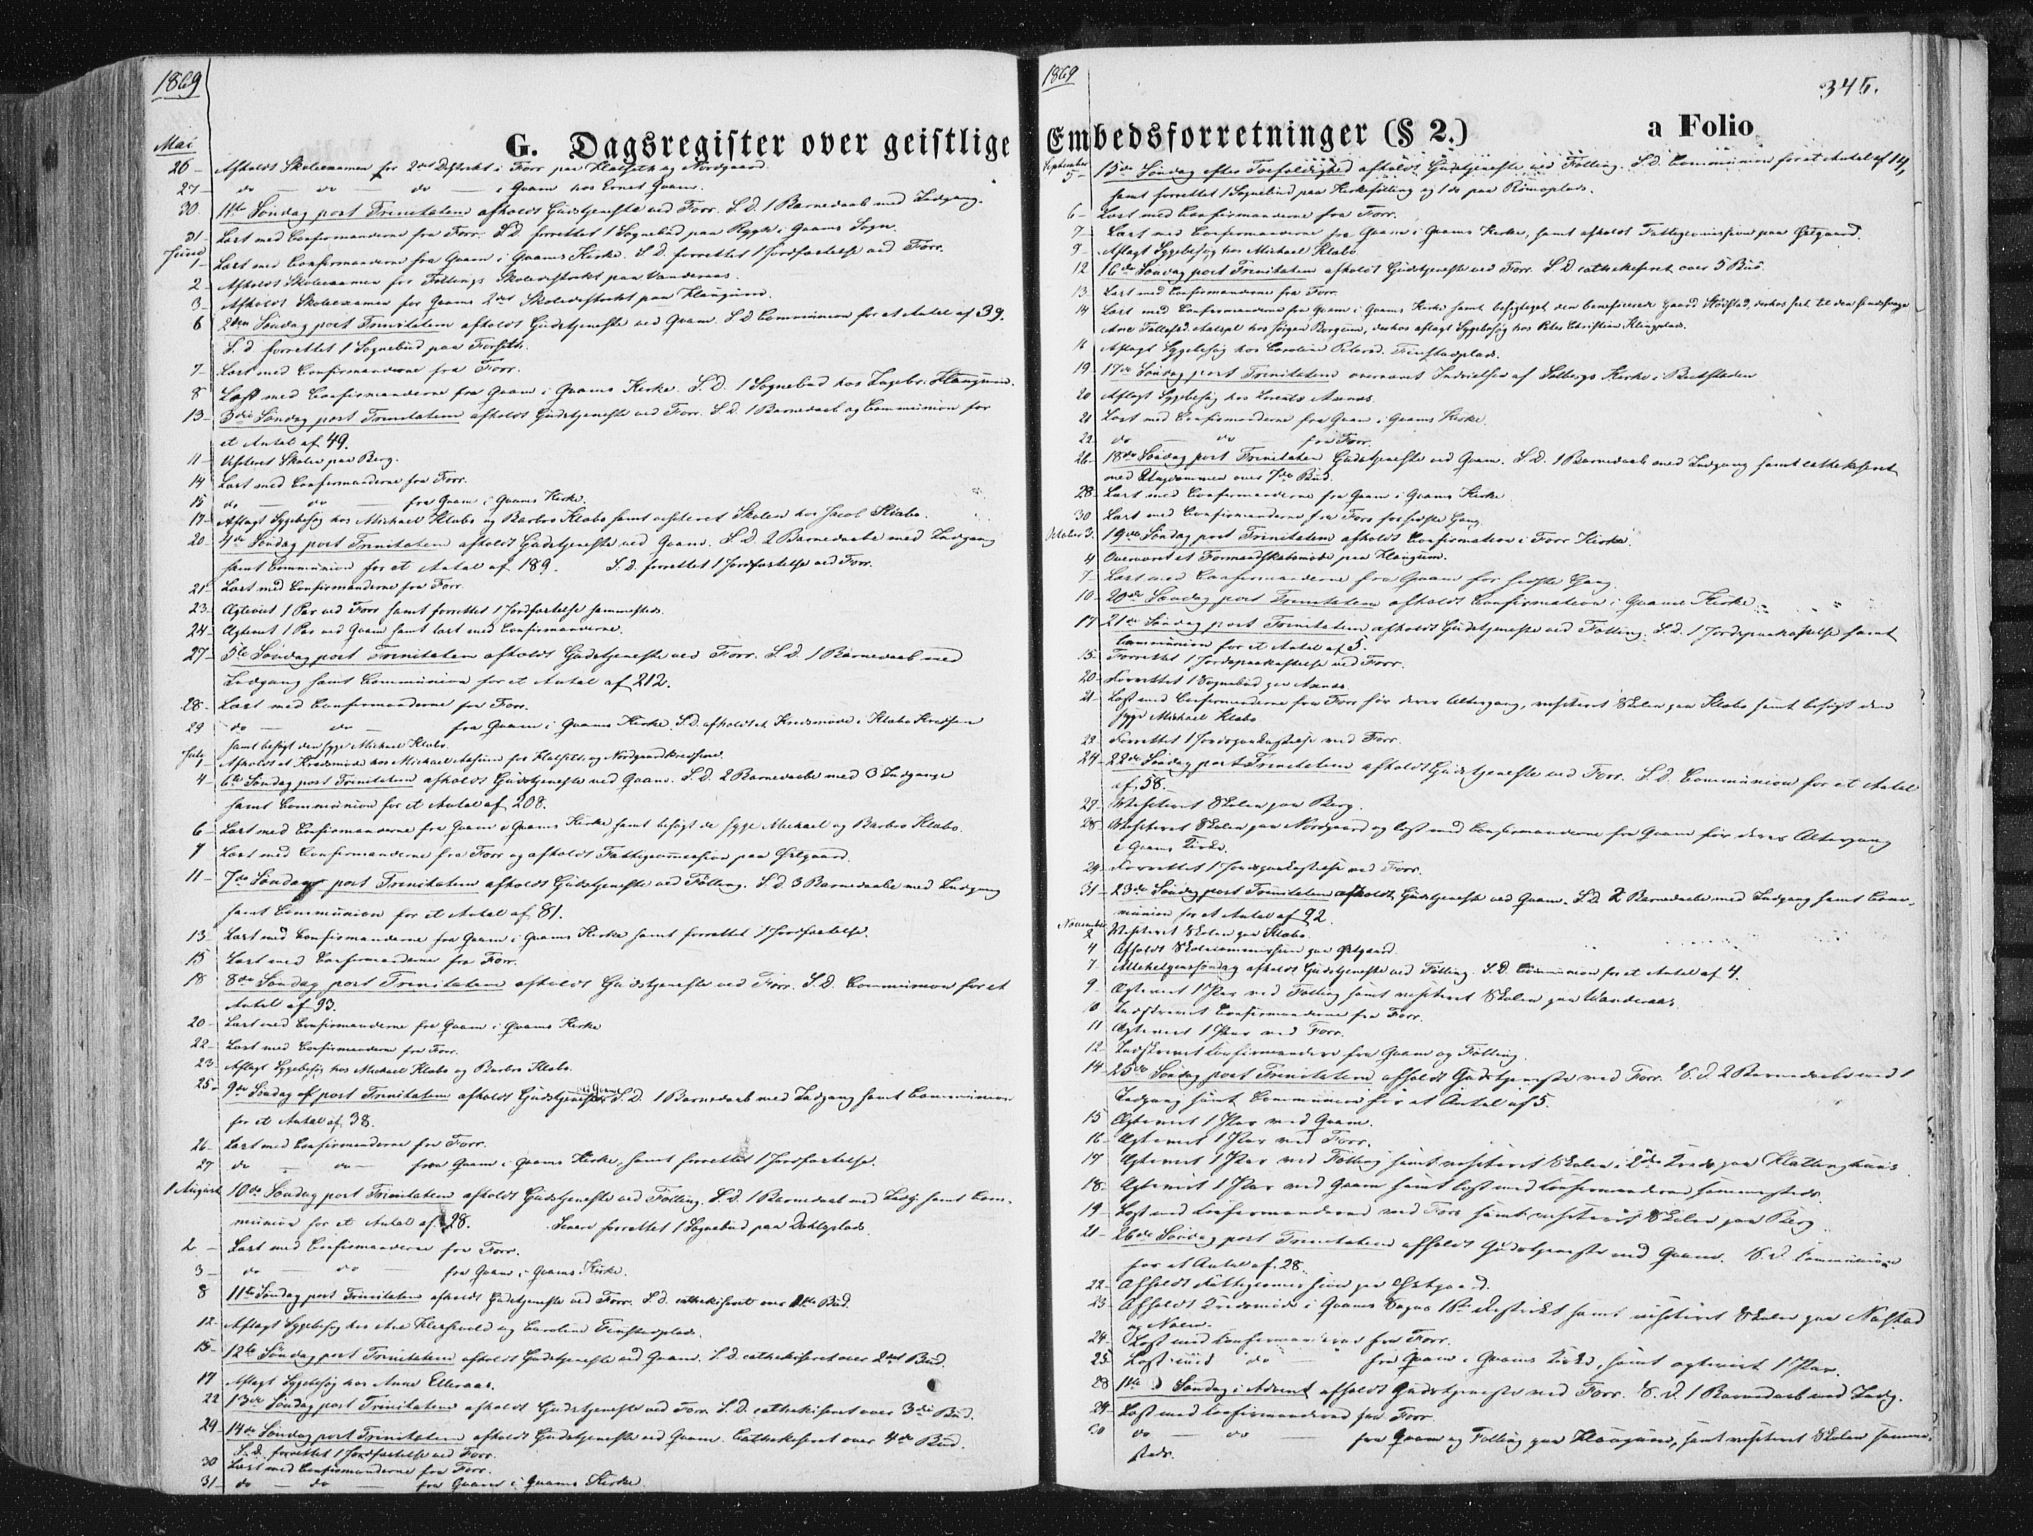 1869
G. Dagsregister over geistlige
Mai
26 - Afholdt Skoleexamen for 2det District i Forr paa Klæseth og Nordgaard.
27 - do — do — do — i Qvam hos Ernst Qvam.
30 11te Søndag post Trinitatem afholdt Gudstjeneste ved Forr. S. D. 1 Barnedaab med Indgang.
31 Læst med Confirmanderne fra Forr. S. D. forrettet 1 Sognebud paa Rygh i Qvams Sogn.
Juni
1 - Læst med Confirmanderne fra Qvam i Qvams Kirke. S. D. forrettet 1 Jordfæstelse ved Forr.
2 - Afholdt Skoleexamen for Føllings Skoledistrikt paa Vanderaas.
3 - Afholdt Skoleexamen for Qvams 2det Skoledistrikt paa Haugum.
6 2den Søndag post Trinitatem afholdt Gudstjeneste ved Qvam. S. D. Communion for et Antal af 39.
S. d. forrettet 1 Sognebud paa Forseth.
7 - Læst med Confirmanderne fra Forr.
8 Læst med Confirmanderne fra Qvam i Qvams Kirke. S. D. 1 Sognebud hos Ingebr. Haugum.
13 - 3die Søndag post Trinitatem afholdt Gudstjeneste ved Forr. S. D. 1 Barnedaab og Communion for
et Antal af 49.
11 - Visiteret Skolen paa Berg.
14 Læst med Confirmanderne fra Forr.
15 do — do — fra Qvam i Qvams Kirke.
17 - Aflagt Sygebesøg hos Michael Klabo og Barbro Klabo samt visiteret Skolen hos Jacob Klabo.
20 - 4de Søndag post Trinitatem afholdt Gudstjeneste ved Qvam. S. D. 2 Barnedaabe med Indgang
samt Communion for et Antal af 189. S. d. forrettet 1 Jordfæstelse ved Forr.
21 - Læst med Confirmanderne fra Forr.
23 - Ægteviet 1 Par ved Forr samt forrettet 1 Jordfæstelse sammesteds.
24 - Ægteviet 1 Par ved Qvam samt læst med Confirmanderne.
27 - 5te Søndag post Trinitatem afholdt Gudstjeneste ved Forr. S. D. 1 Barnedaab med
Indgang samt Communion for et Antal af 212.
28 - Læst med Confirmanderne fra Forr.
29 do — do — fra Qvam i Qvams Kirke. S. D. afholdt et Kredsmøde i Klabo Kredsen
samt besøgt den syge Michael Klabo.
July
1 Afholdt et Kredsmøde hos Michael
4 - 6te Søndag post Trinitatem afholdt Gudstjeneste ved Qvam. S. D. 2 Barnedaabe med 3 Indgange
samt Communion for et Antal af 208.
6 - Læst med Confirmanderne fra Qvam i Qvams Kirke samt besøgt de syge Michael og Barbro Klabo.
7 Læst med Confirmanderne fra Forr og afholdt Fattigcommission paa Østgaard.
11 - 7de Søndag post Trinitatem afholdt Gudstjeneste ved Følling. S. D. 3 Barnedaabe med Indgang
samt Communion for et Antal af 81.
13 - Læst med Confirmanderne fra Qvam i Qvams Kirke samt forrettet 1 Jordfæstelse.
15 Læst med Confirmanderne fra Forr.
18 8de Søndag post Trinitatem afholdt Gudstjeneste ved Forr. S. D. Communion for et
Antal af 93.
20 - Læst med Confirmanderne fra Qvam i Qvams Kirke
22 - Læst med Confirmanderne fra Forr.
23 Aflagt Sygebesøg hos Michael Klabo og Barbro Klabo.
25 - 9de Søndag post Trinitatem afholdt Gudstjeneste ved Qvam S. D. 1 Barnedaab med Indgang samt Communion
for et Antal af 38.
26 - Læst med Confirmanderne fra Forr.
27 do — do — fra Qvam i Qvams Kirke, samt forrettet 1 Jordfæstelse.
1 August 10de Søndag post Trinitatem afholdt Gudstjeneste ved Følling. S. D. 1 Barnedaab med Indg. samt Com-
munion for et Antal af 28. Senere forrettet 1 Sognebud paa
2 - Læst med Confirmanderne fra Forr.
3 - do — do — fra Qvam i Qvams Kirke.
8 11te Søndag post Trinitatem afholdt Gudstjeneste ved Forr. S. D. cathekiseret over 1ste Bud.
12 Aflagt Sygebesøg hos og Caroline Finstadplads.
15 - 12te Søndag post Trinitatem afholdt Gudstjeneste ved Qvam. S. D. cathekiseret over 2det Bud.
17 Aflagt Sygebesøg hos Anne Elleraas.
22 13de Søndag post Trinitatem afholdt Gudstjeneste ved Forr. S. D. cathekiseret over 3die Bud.
29 - 14de Søndag post Trinitatem afholdt Gudstjeneste ved Qvam. Cathekiseret over 4de Bud.
S. d. forrettet 1 Jordfæstelse ved Forr.
30 Læst med Confirmanderne fra Forr.
31 - do — do — fra Qvam i Qvams Kirke.
1869
345.
Embedsforretninger (§ 2.) a Folio
September
5 - 15de Søndag efter Trefoldighed afholdt Gudstjeneste ved Følling. S. d. Communion for et Antal af 14,
samt forrettet 1 Sognebud paa Kirkefølling og 1 do paa
6 - Læst med Confirmanderne fra Forr.
7 - Læst med Confirmanderne fra Qvam i Qvams Kirke, samt afholdt Fattigcommission paa Østgaard.
9 - Aflagt Sygebesøg hos Michael Klabo
12 16de Søndag post Trinitatem afholdt Gudstjeneste ved Forr. S. D. cathekiseret over 5 Bud.
13 - Læst med Confirmanderne fra Forr.
14 Læst med Confirmanderne fra Qvam i Qvams Kirke samt besigtiget den beneficerede Gaard
hos Jørgen Bergum, derhos aflagt Sygebesøg hos Peter Christian
16 Aflagt Sygebesøg hos Caroline Finstadplads.
19 17de Søndag post Trinitatem overværet Indvielsen af Solbergs Kirke i Beitstaden
20 Aflagt Sygebesøg hos Aasnes.
21 Læst med Confirmanderne fra Qvam i Qvams Kirke.
22 do — do fra Forr.
26 - 18de Søndag post Trinitatem Gudstjeneste ved Qvam. S. D. 1 Barnedaab med Indgang samt cathekiseret
med Ungdommen over 7de Bud.
28 - Læst med Confirmanderne fra Qvam i Qvams Kirke
30 Læst med Confirmanderne fra Forr for sidste Gang.
October 3. 19de Søndag post Trinitatem afholdt Confirmation i Forr Kirke.
4 Overværet et Formandskabsmøde paa Haugum.
7 - Læst med Confirmanderne fra Qvam for sidste Gang.
10 - 20de Søndag post Trinitatem afholdt Confirmation i Qvams Kirke.
17 21de Søndag post Trinitatem afholdt Gudstjeneste ved Følling. S. D. 1 Jordspaakastelse samt
Communion for et Antal af 5.
15 - Forrettet 1 Jordspaakastelse ved Forr.
20 - Forrettet 1 Sognebud paa Aasnes.
21 - Læst med Confirmanderne fra Forr før deres Altergang, visiteret Skolen paa Klabo samt besøgt den
syge Michael Klabo.
23 Forrettet 1 Jordspaakastelse ved Forr.
24 - 22de Søndag post Trinitatem afholdt Gudstjeneste ved Forr. S. D. Communion for et Antal
af 58.
27 - Visiteret Skolen paa Berg.
28 Visiteret Skolen paa Nordgaard og læst med Confirmanderne fra Qvam før deres Altergang
i Qvams Kirke.
29 - Forrettet 1 Jordspaakastelse ved Forr.
31 - 23de Søndag post Trinitatem afholdt Gudstjeneste ved Qvam. S. D. 2 Barnedaabe med Indgang samt Com-
munion for et Antal af 92.
November
2 Visiteret Skolen paa Klabo.
4 Afholdt Skolecommission paa Østgaard.
7 Allehelgenssøndag afholdt Gudstjeneste ved Følling. S. D. Communion for et Antal af 4.
9 Ægteviet 1 Par ved Følling samt visiteret Skolen paa Vanderaas.
10 Indskrevet Confirmanderne fra Forr.
11 Ægteviet 1 Par ved Forr.
12 - Indskrevet Confirmander fra Qvam og Følling.
14 - 25de Søndag post Trinitatem afholdt Gudstjeneste ved Forr. S. d. 2 Barnedaabe med 1
Indgang samt Communion for et Antal af 5.
15 Ægteviet 1 Par ved Qvam.
16 - Ægteviet 1 Par ved Forr.
17 Ægteviet 1 Par ved Følling samt visiteret Skolen i 2den Kreds paa
18. Ægteviet 1 Par ved Qvam samt læst med Confirmanderne sammesteds.
19 - Læst med Confirmanderne ved Forr samt visiteret Skolen paa Berg.
21 - 26de Søndag post Trinitatem afholdt Gudstjeneste ved Qvam. S. d. Communion
for et Antal af 28.
22 - Afholdt Fattigcommission paa Østgaard.
23 - Afholdt Kredsmøde i Qvams Sogns 1ste District samt visiteret Skolen paa
24 - Læst med Confirmanderne fra Forr.
25 - Læst med do — fra Qvam i Qvams Kirke, samt ægteviet 1 Par.
28 1ste Søndag i Advent afholdt Gudstjeneste ved Forr. S. d. 1 Barnedaab med Indg.
29 - Læst med Confirmanderne fra Forr.
30 do — do — fra Qvam og Følling paa Haugum, samt visiteret Skolen samme-
steds.